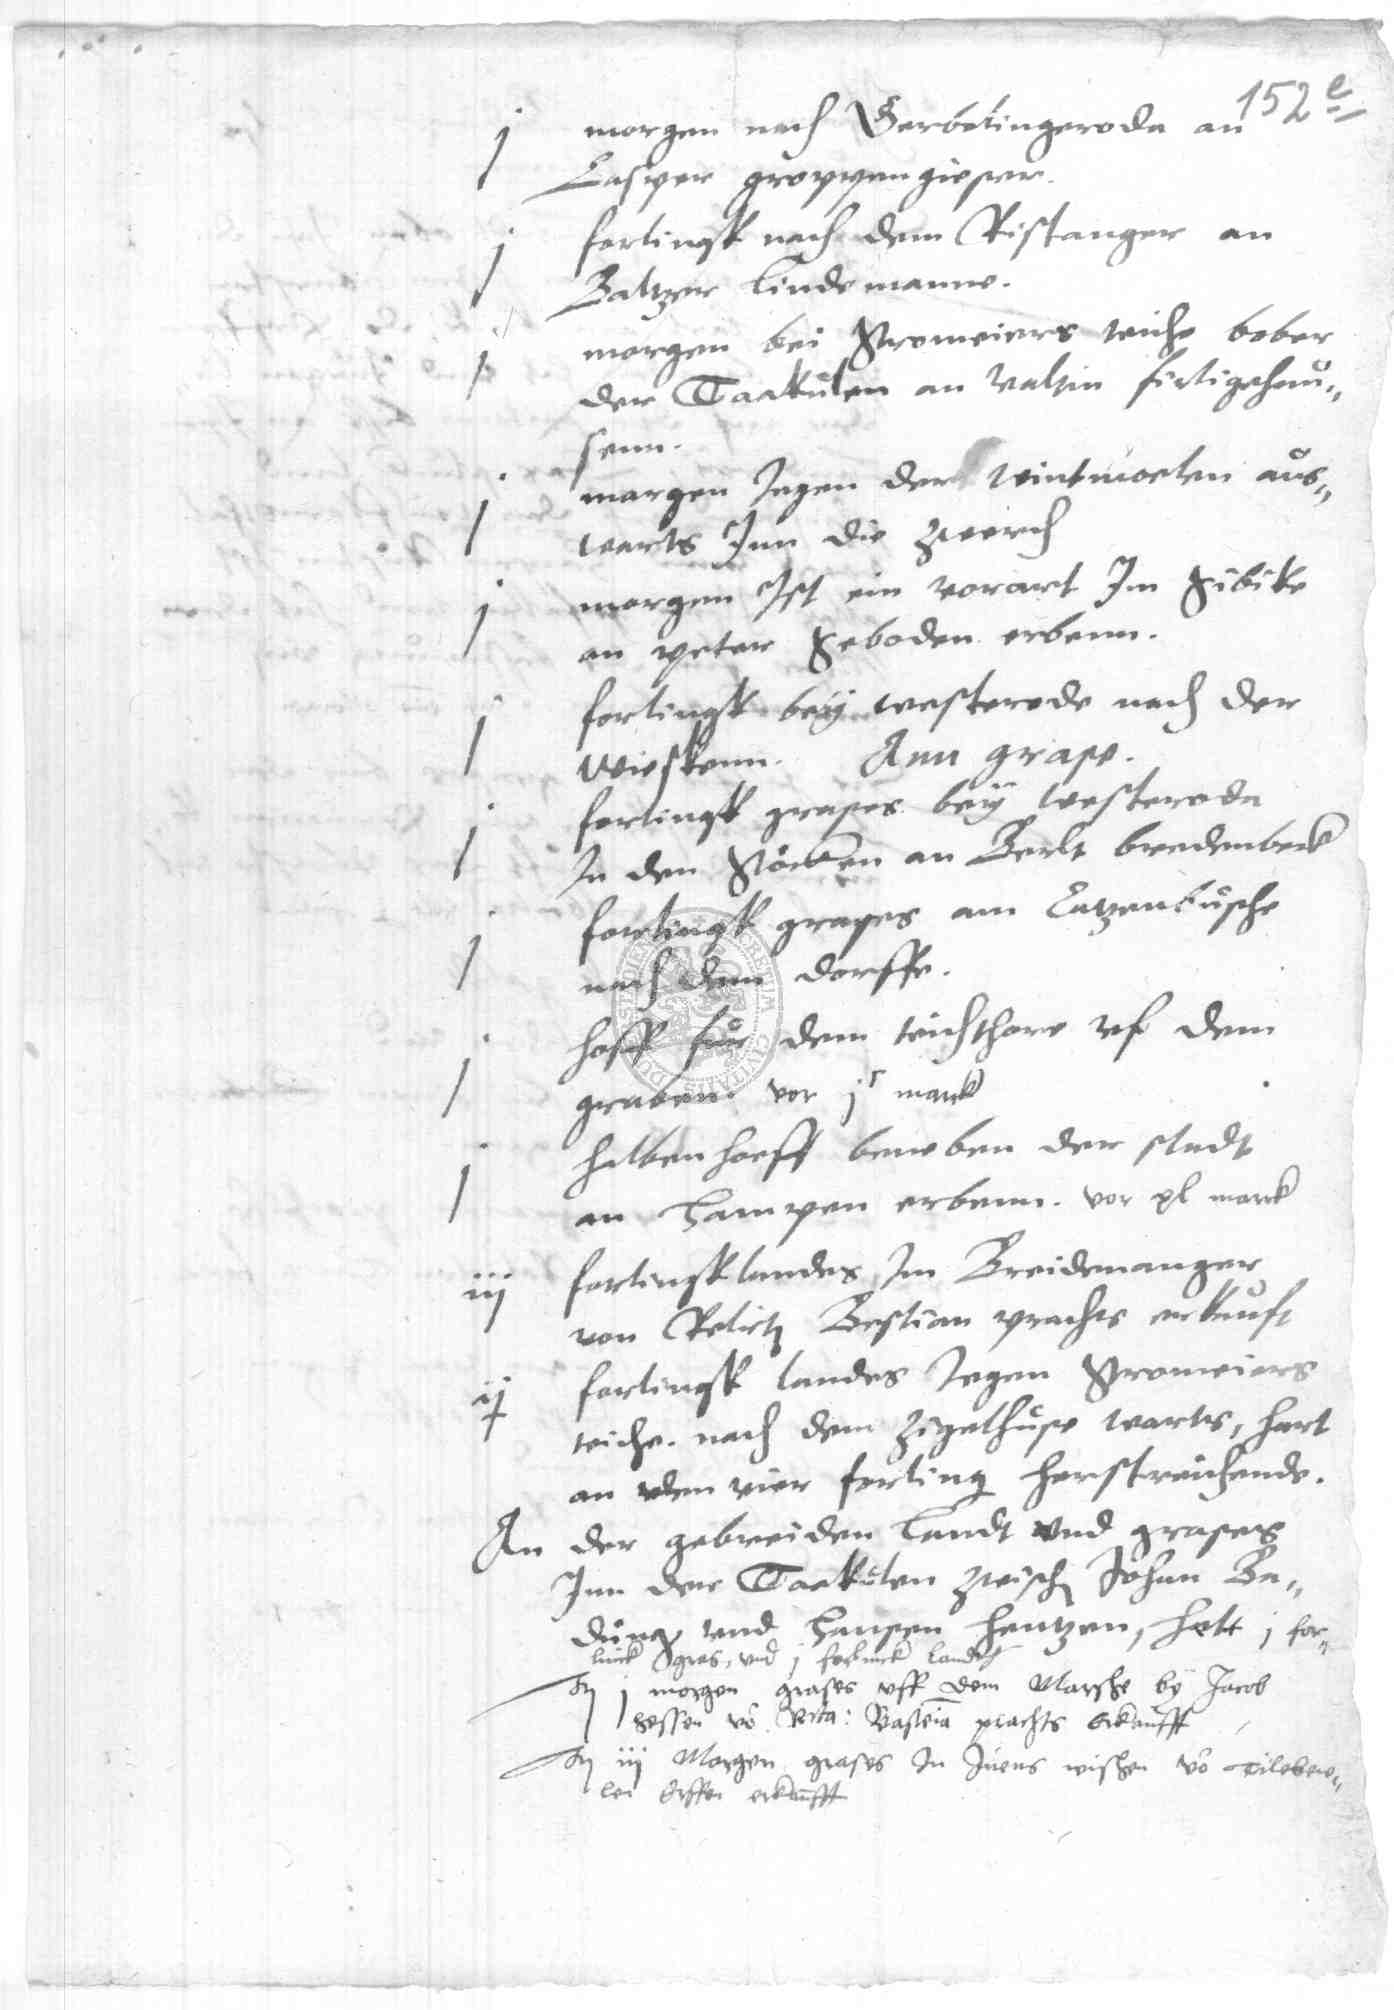 152 e
j morgen nach Gerbelingeroda an
Casper groppengieser.
j forlingk nach dem Ristanger an
Baltzer Lindemanne.
j morgen bei Stromeiers teiche bober
der Taakulen an Valtin firligehau„
senn.
j morgen Jegen der Wintmoelen aus„
warts Jnn die zwerch
j morgen Jst ein vorart Jm Sibike
an peter Seboden erbenn.
j forlingk bey westerode nach der
Wieskenn. Ann grase.
j forlingk grases bey Westeroda
Jn den Stöcken an Berlt bredenbeck
j forlingk grases am Catzenbusche
nach dem dorffe.
j hoff fur dem teichthore vf dem
graben. vor j marck
j halben hoeff beneben der stadt
an Hampen erbenn. vor xl marck
iij forlingk landes Jm Breidenanger
von Relict Bestian prachts erkauft
ij forlingk landes Jegen Stromeiers
teiche. nach dem Zigelhuse warts, hart
an den vier forling herstreichende.
An der gebreiden Landt vnd grases
Jnn der Taakulen zwisch Johan Ba„
dung vnd Hansen hentzen, helt j for„
linck gras, vnd j forlinck landes
j morgen grases vff dem Marsche by Jacob
hessen vo Reta: Basteia prachts erkaufft
iij Morgen grases Jn Juens wischen vo
erkaufft